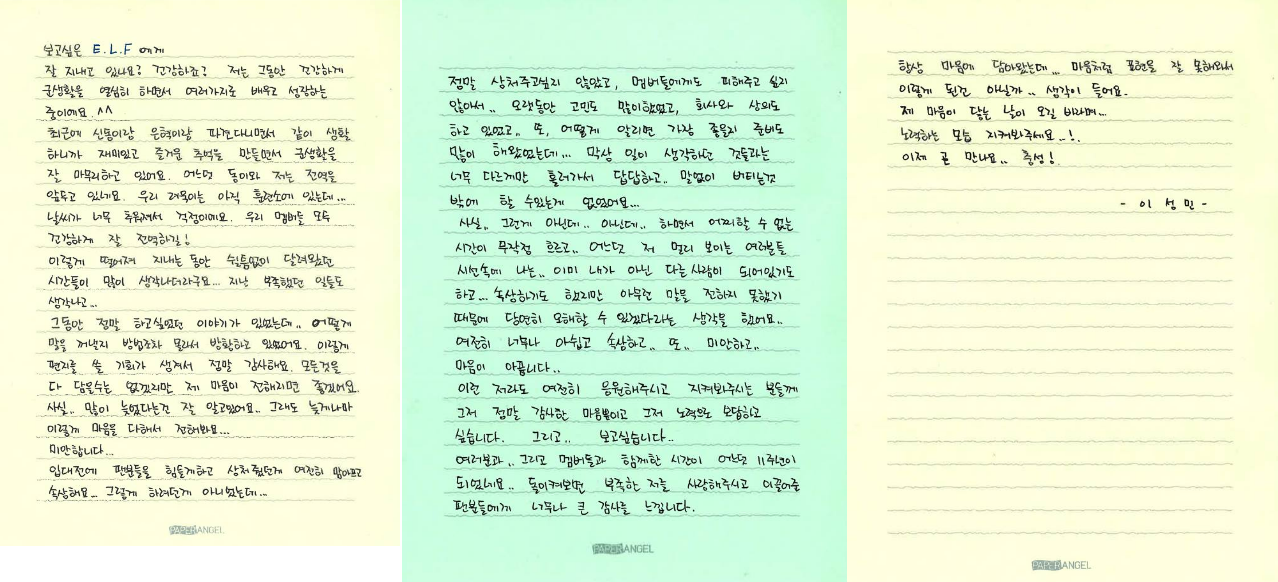 보고싶은 E.L.F 에게
잘 지내고 있나요? 건강하죠? 저는 그동안 건강하게
군생활을 열심히 하면서 여러가지로 배우고 성장하는
중이에요.^^
최근에 신동이랑 은혁이랑 파견다니면서 같이 생활
하니까 재미있고 즐거운 추억을 만들면서 군생활을
잘 마무리하고 있어요. 어느덧 동이와 저는 전역을
앞두고 있네요. 우리 려욱이는 아직 훈련소에 있는데...
날씨가 너무 추워져서 걱정이에요. 우리 멤버들 모두
건강하게 잘 전역하길!
이렇게 떨어져 지내는 동안 쉴틈없이 달려왔던
시간들이 많이 생각나더라구요... 지난 부족했던 일들도
생각나고...
그동안 정말 하고싶었던 이야기가 있었는데.. 어떻게
말을 꺼낼지 방법조차 몰라서 방황하고 있었어요. 이렇게
편지를 쓸 기회가 생겨서 정말 감사해요. 모든것을
다 담을수는 없겠지만 제 마음이 전해지면 좋겠어요.
사실.. 많이 늦었다는건 잘 알고있어요.. 그래도 늦게나마
이렇게 마음을 다해서 전해봐요...
미안합니다...
입대전에 팬분들을 힘들게하고 상처줬던게 여전히 맘아프고
속상해요... 그렇게 하려던게 아니었는데...
PAPER ANGEL
정말 상처주고싶지 않았고, 멤버들에게도 피해주고 싶지
않아서.. 오랫동안 고민도 많이했었고, 회사와 상의도
하고 있었고.. 또, 어떻게 알리면 가장 좋을지 준비도
많이 해왔었는데... 막상 일이 생각하던 것들과는
너무 다르게만 흘러가서 답답하고.. 말없이 버티는것
밖에 할 수있는게 없었어요...
사실.. 그런게 아닌데.. 아닌데.. 하면서 어찌할 수 없는
시간이 무작정 흐르고.. 어느덧 저 멀리 보이는 여러분들
시선속에 나는.. 이미 내가 아닌 다른사람이 되어있기도
하고... 속상하기도 했지만 아무런 말을 전하지 못했기
때문에 당연히 오해할 수 있겠다라는 생각을 했어요..
여전히 너무나 아쉽고 속상하고.. 또.. 미안하고..
마음이 아픕니다..
이런 저라도 여전히 응원해주시고 지켜봐주시는 분들께
그저 정말 감사한 마음뿐이고 그저 노력으로 보답하고
싶습니다. 그리고.. 보고싶습니다..
여러분과.. 그리고 멤버들과 함께한 시간이 어느덧 11주년이
되었네요.. 돌이켜보면 부족한 저를 사랑해주시고 이끌어준
팬분들에게 너무나 큰 감사를 느낍니다.
PAPER ANGEL
항상 마음에 담아왔는데... 마음처럼 표현을 잘 못해와서
이렇게 된건 아닐까.. 생각이 들어요.
제 마음이 닿는 날이 오길 바라며...
노력하는 모습 지켜봐주세요..!.
이제 곧 만나요.. 충성!
- 이 성 민 -
PAPER ANGEL